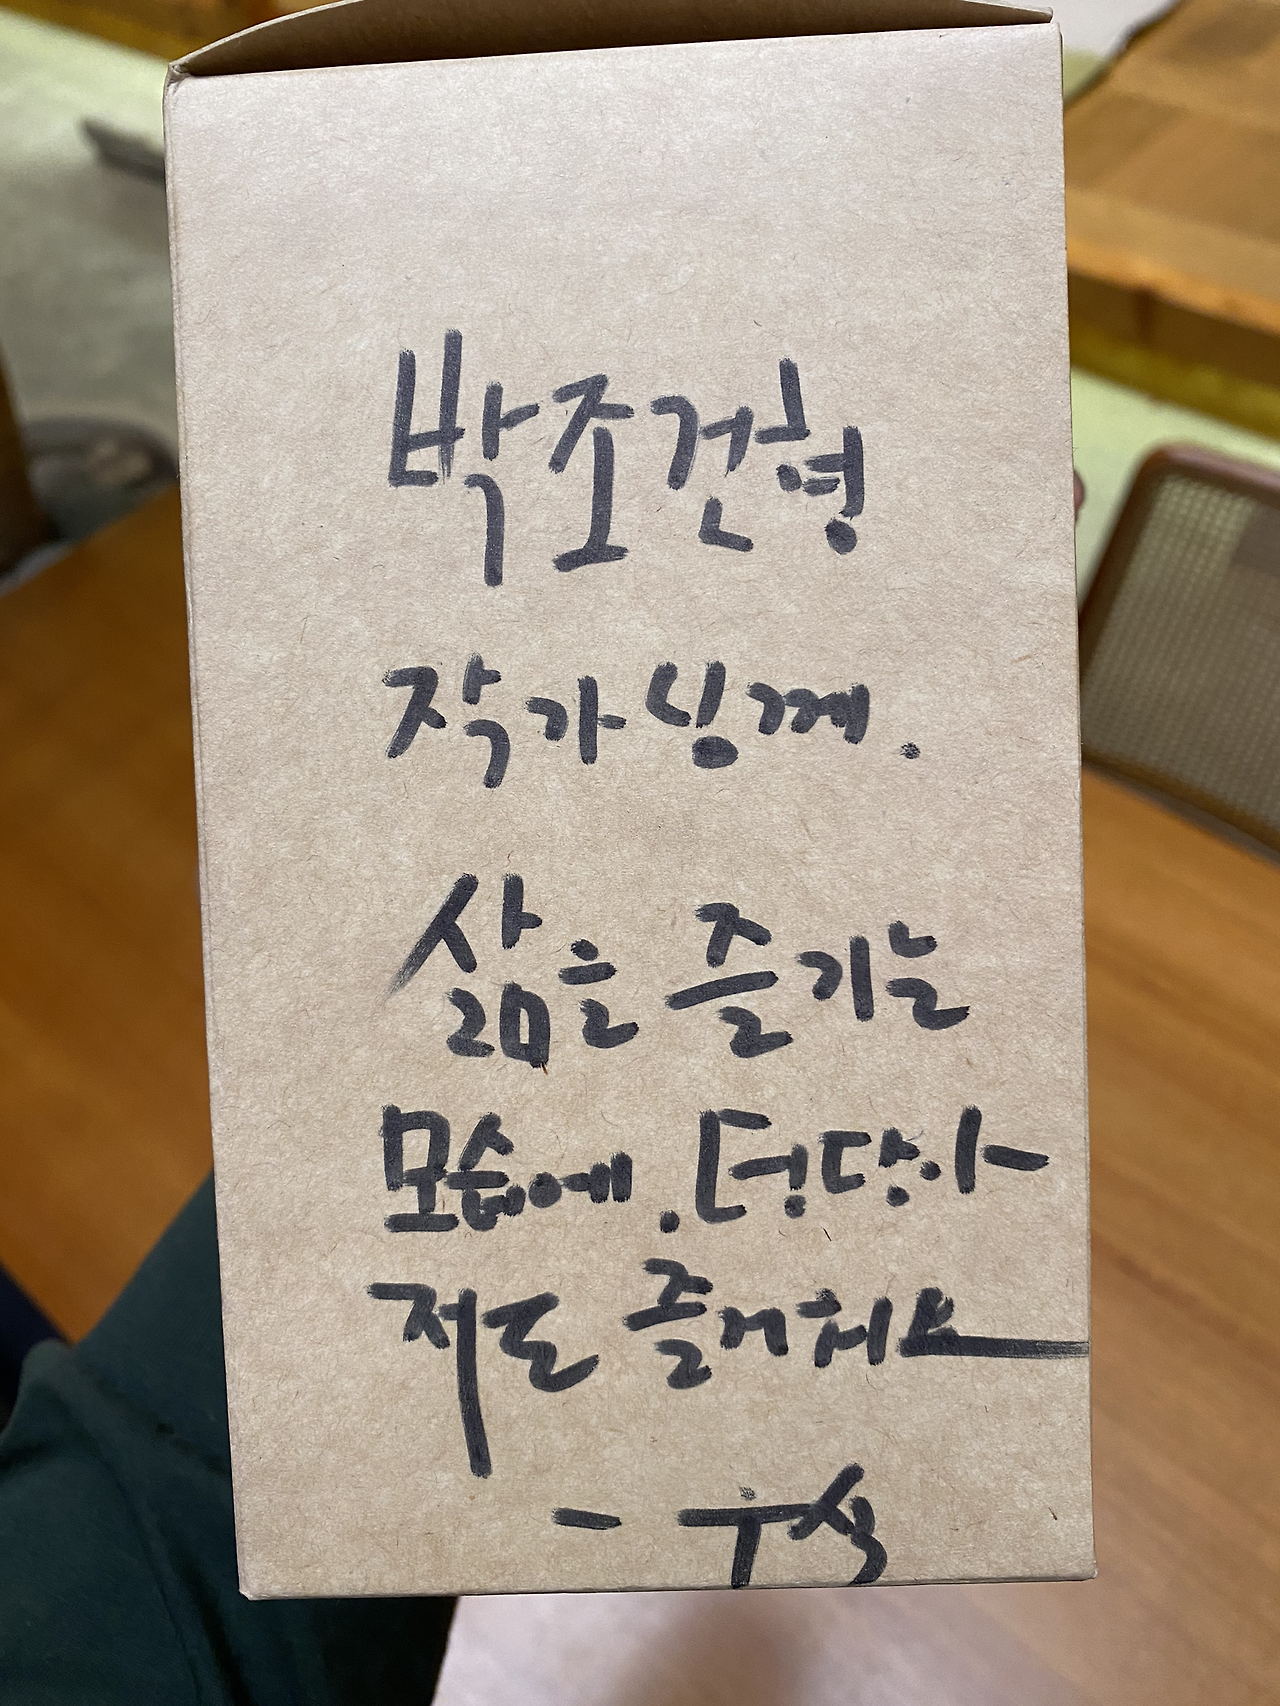 박조건형
작가님께.
삶을 즐기는
모습에. 덩달아
저도 즐거워요
- 우석